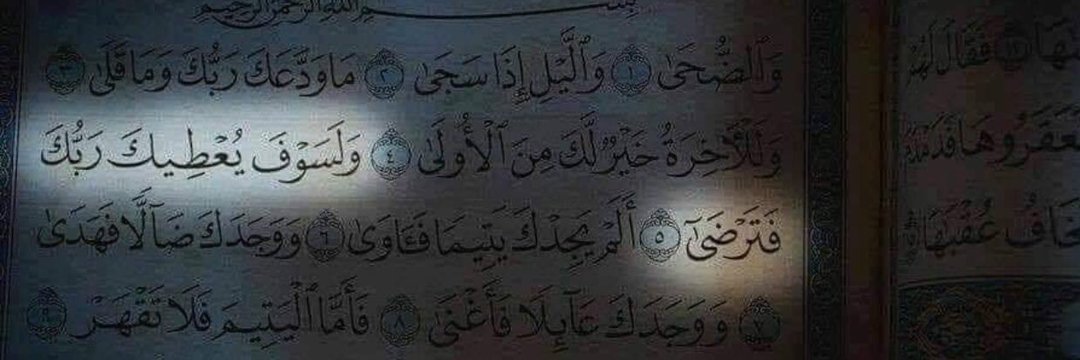 بِسْمِ ٱللَّهِ ٱلرَّحْمَٰنِ ٱلرَّحِيمِ
وَٱلضُّحَىٰ ١ وَٱلَّيْلِ إِذَا سَجَىٰ ٢ مَا وَدَّعَكَ رَبُّكَ وَمَا قَلَىٰ ٣
وَلَلْءَاخِرَةُ خَيْرٌ لَّكَ مِنَ ٱلْأُولَىٰ ٤ وَلَسَوْفَ يُعْطِيكَ رَبُّكَ
فَتَرْضَىٰٓ ٥ أَلَمْ يَجِدْكَ يَتِيمًا فَـَٔاوَىٰ ٦ وَوَجَدَكَ ضَآلًّا فَهَدَىٰ
٧ وَوَجَدَكَ عَآئِلًا فَأَغْنَىٰ ٨ فَأَمَّا ٱلْيَتِيمَ فَلَا تَقْهَرْ ٩
فَقَالَ لَهُمْ
فَعَقَرُوهَا فَدَمْدَمَ
يَخَافُ عُقْبَٰهَا